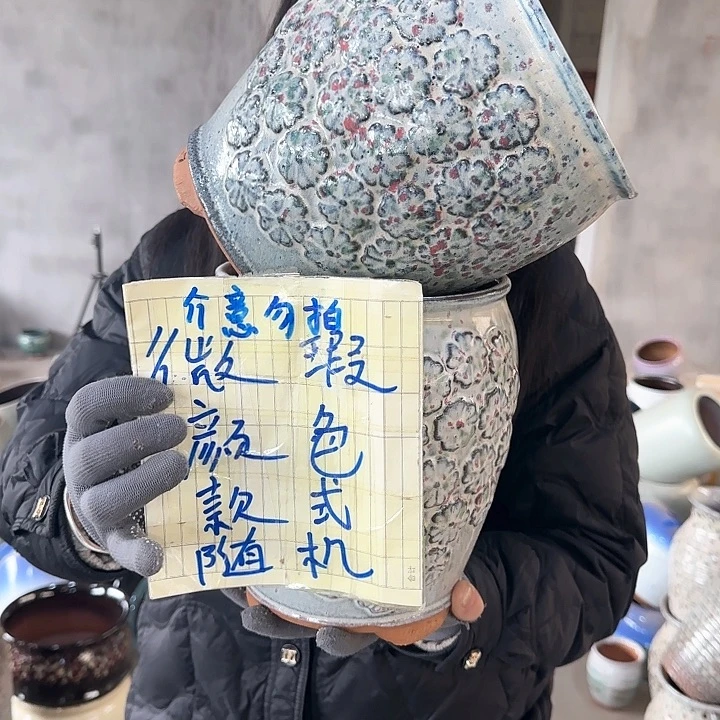 介意勿拍
微瑕
颜色
款式
随机